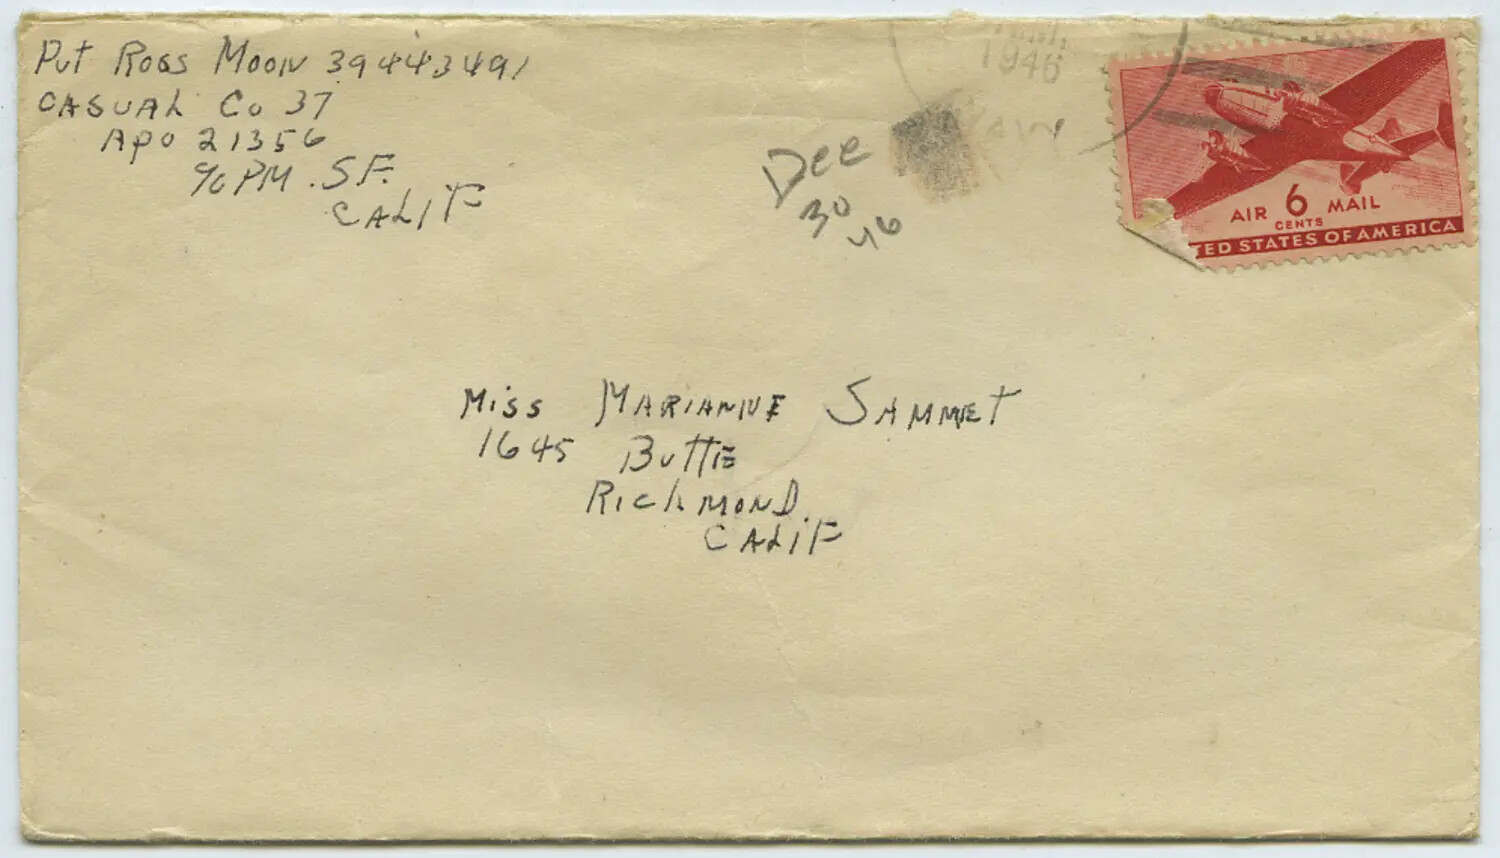 Pvt Ross Moon 39443491
CASUAL Co 37
APO 21356
% PM. S.F.
CALIF
Dec
30
46
1946
AIR 6 MAIL
CENTS
TED STATES OF AMERICA
Miss MARIANNE SAMMET
1645 BUTTE
RICHMOND
CALIF